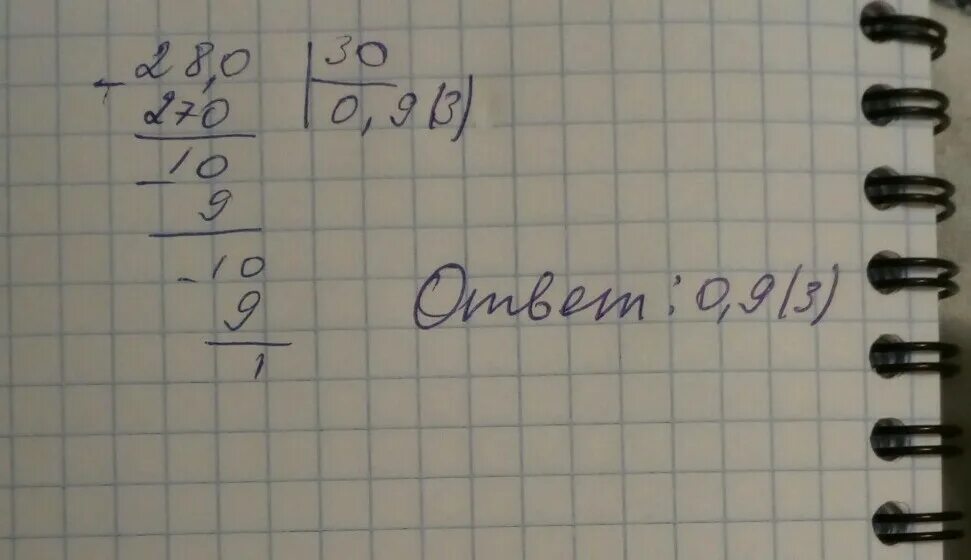 - 28,0 | 30
270 | 0,9(3)
- 10
9
- 10
9
1
Ответ: 0,9(3)